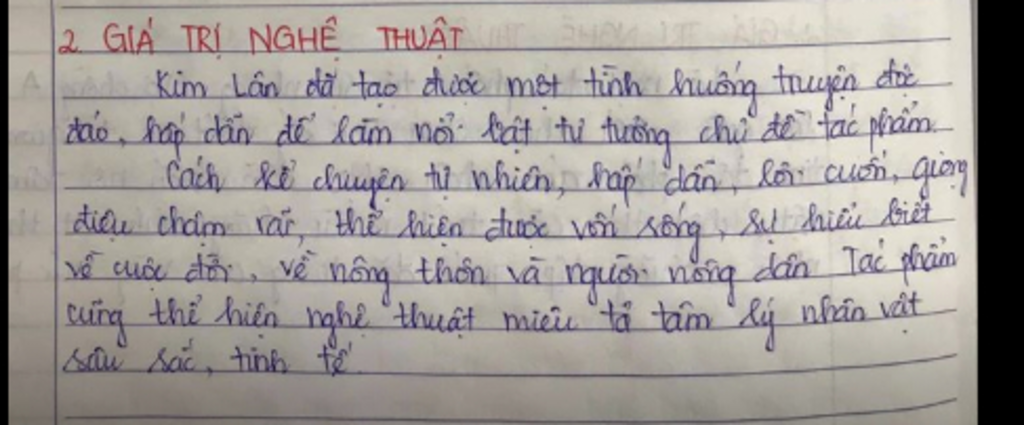 2. GIÁ TRỊ NGHỆ THUẬT
Kim Lân đã tạo được một tình huống truyện độc
đáo, hấp dẫn để làm nổi bật tư tưởng chủ đề tác phẩm.
Cách kể chuyện tự nhiên, hấp dẫn, lôi cuốn, giọng
điệu chậm rãi, thể hiện được vốn sống, sự hiểu biết
về cuộc đời, về nông thôn và người nông dân Tác phẩm
cũng thể hiện nghệ thuật miêu tả tâm lý nhân vật
sâu sắc, tinh tế.